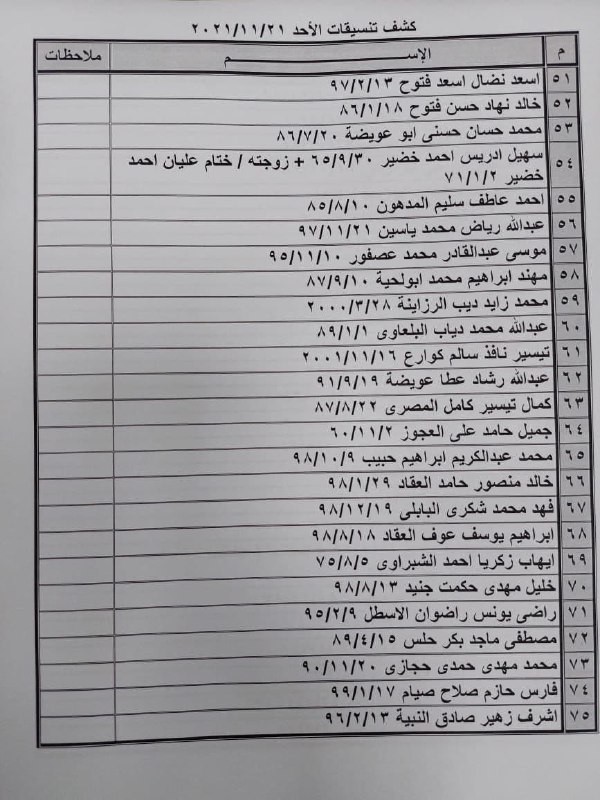 كشف تنسيقات الأحد ٢٠٢١/١١/٢١
م الإســـــــم ملاحظات
٥١ اسعد نضال اسعد فتوح ٩٧/٢/١٣
٥٢ خالد نهاد حسن فتوح ٨٦/١/١٨
٥٣ محمد حسان حسنى ابو عويضة ٨٦/٧/٢٠
٥٤ سهيل ادريس احمد خضير ٦٥/٩/٣٠ + زوجته / ختام عليان احمد
خضير ٧١/١/٢
٥٥ احمد عاطف سليم المدهون ٨٥/٨/١٠
٥٦ عبدالله رياض محمد ياسين ٩٧/١١/٢١
٥٧ موسى عبدالقادر محمد عصفور ٩٥/١١/١٠
٥٨ مهند ابراهيم محمد ابولحية ٨٧/٩/١٠
٥٩ محمد زايد ديب الرزاينة ٢٠٠٠/٣/٢٨
٦٠ عبدالله محمد دياب البلعاوى ٨٩/١/١
٦١ تيسير نافذ سالم كوارع ٢٠٠١/١١/١٦
٦٢ عبدالله رشاد عطا عويضة ٩١/٩/١٩
٦٣ كمال تيسير كامل المصرى ٨٧/٨/٢٢
٦٤ جميل حامد على العجوز ٦٠/١١/٢
٦٥ محمد عبدالكريم ابراهيم حبيب ٩٨/١٠/٩
٦٦ خالد منصور حامد العقاد ٩٨/١/٢٩
٦٧ فهد محمد شكرى البابلى ٩٨/١٢/١٩
٦٨ ابراهيم يوسف عوف العقاد ٩٨/٨/١٨
٦٩ ايهاب زكريا احمد الشبراوى ٧٥/٨/٥
٧٠ خليل مهدى حكمت جنيد ٩٨/٨/١٣
٧١ راضى يونس راضوان الاسطل ٩٥/٢/٩
٧٢ مصطفى ماجد بكر حلس ٨٩/٤/١٥
٧٣ محمد مهدى حمدى حجازى ٩٠/١١/٢٠
٧٤ فارس حازم صلاح صيام ٩٩/١/١٧
٧٥ اشرف زهير صادق النبية ٩٦/٢/١٣